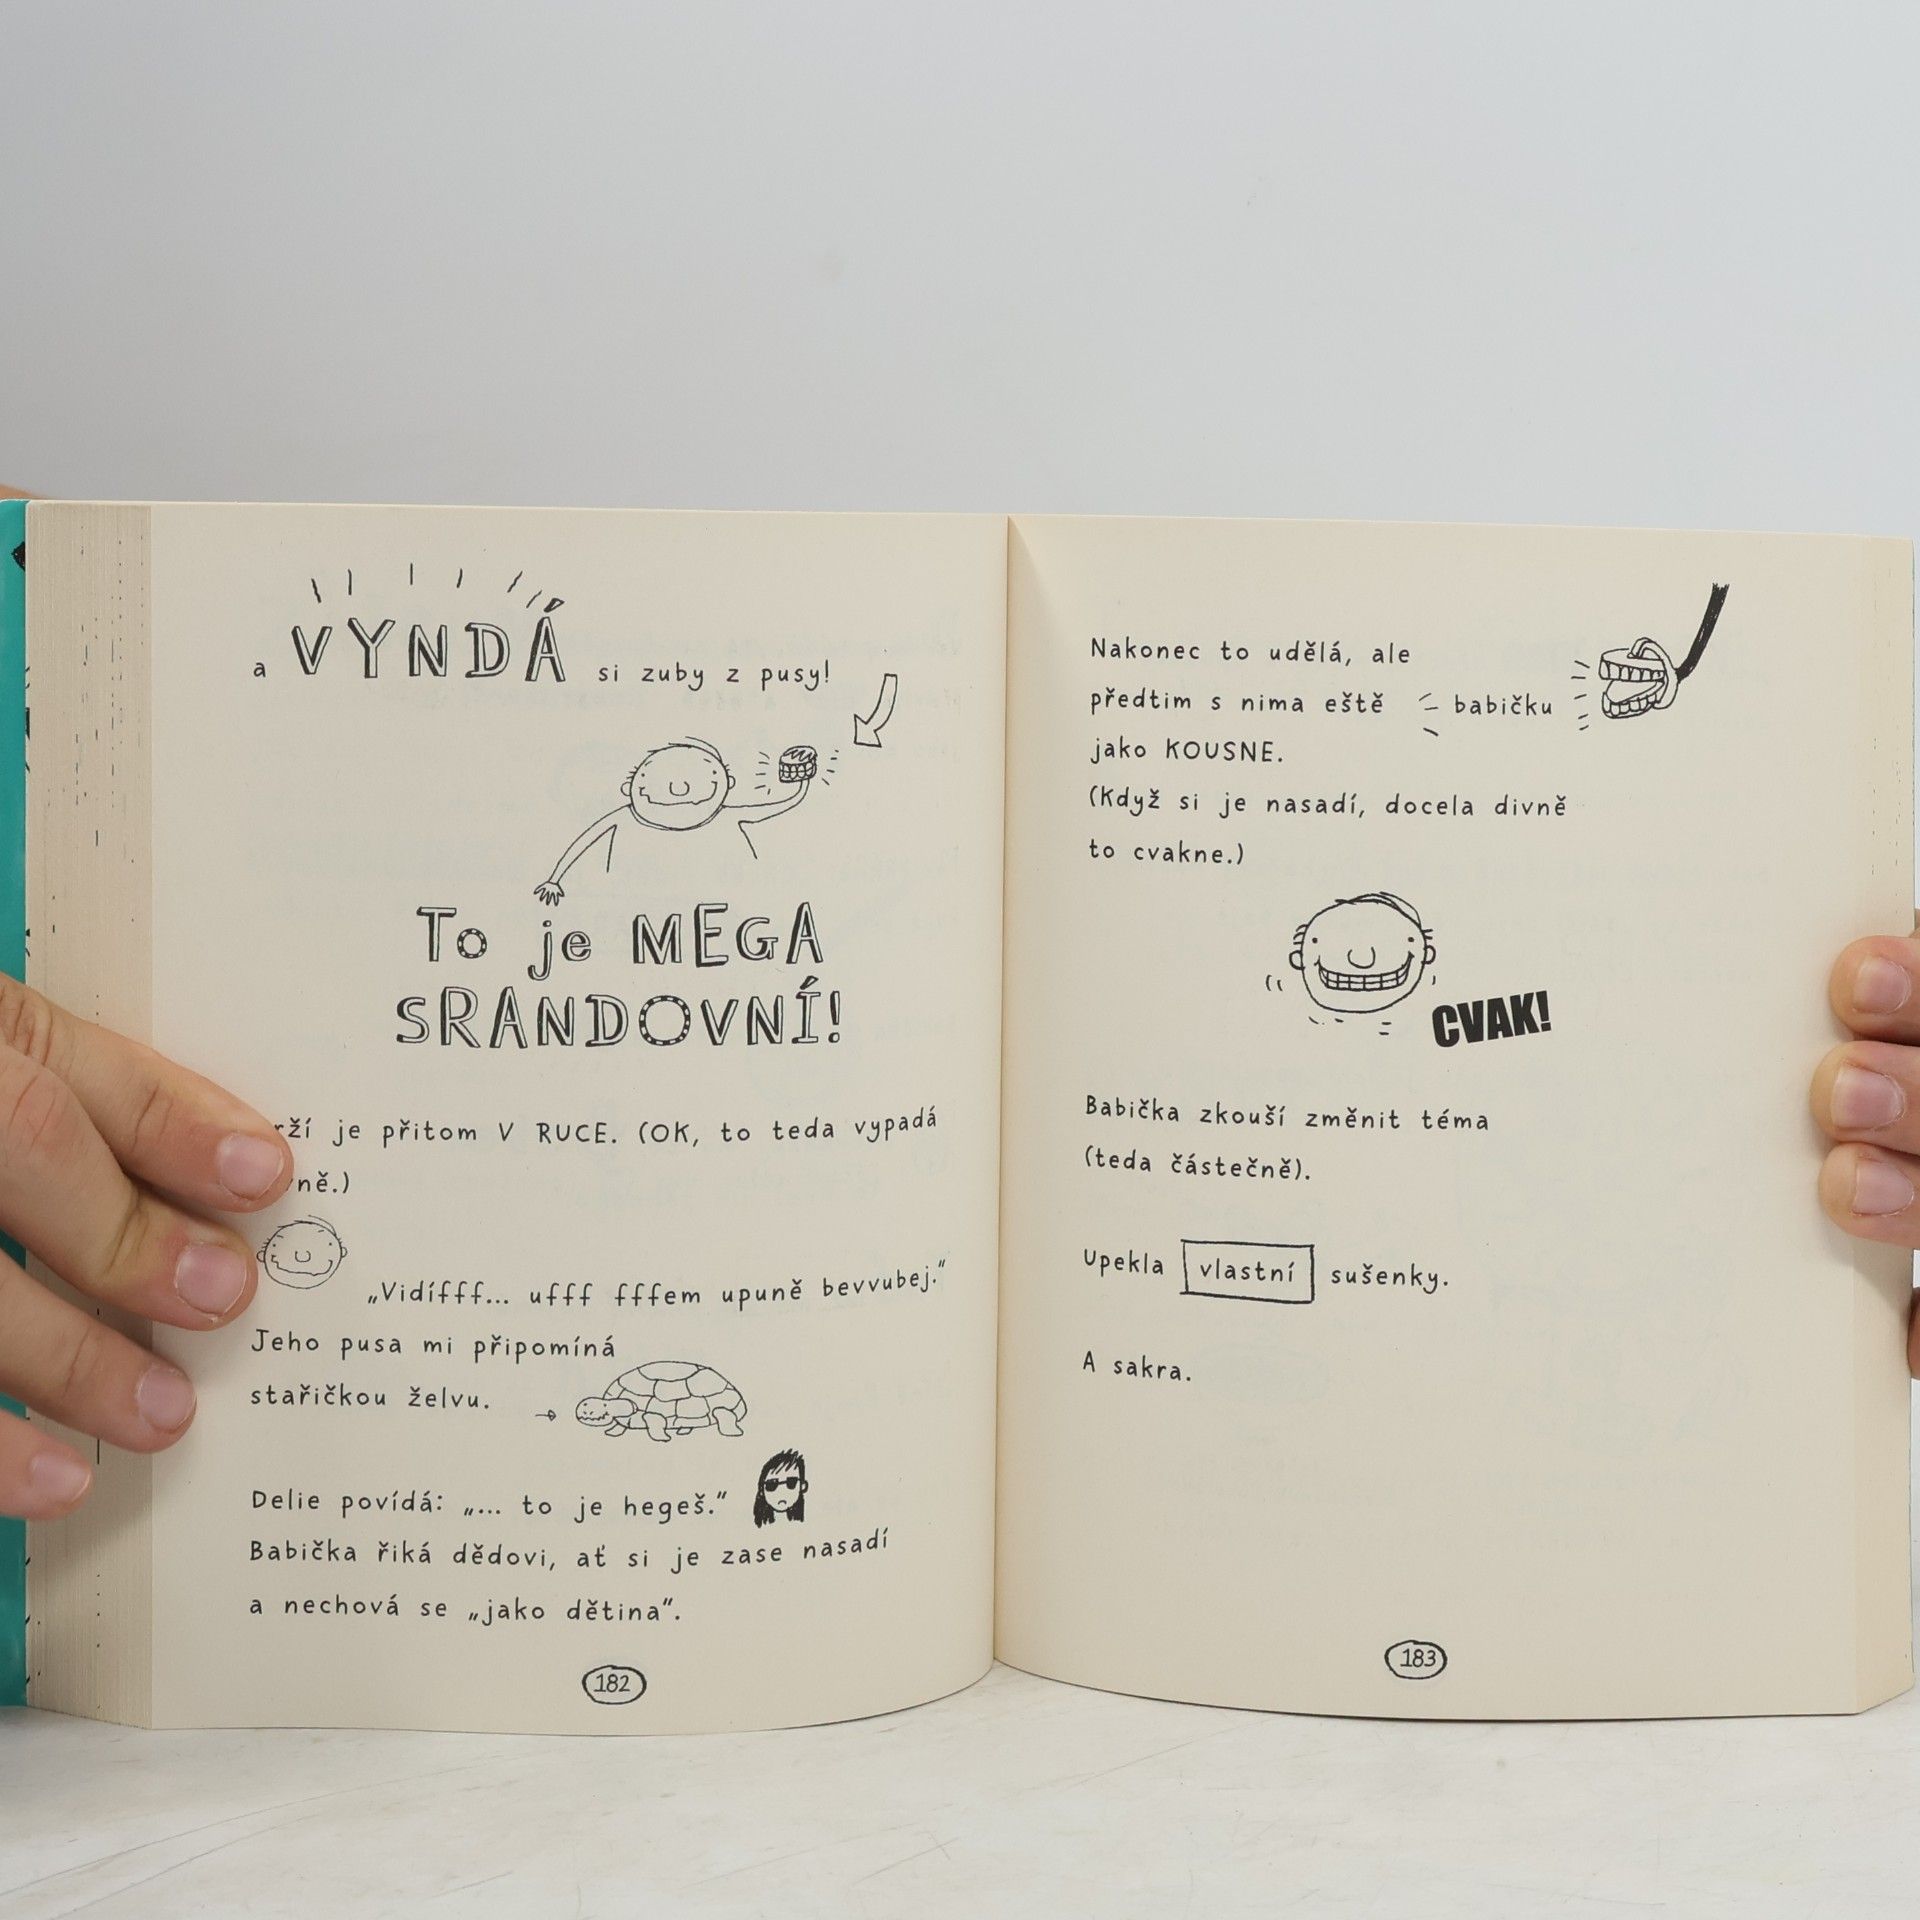 a VYNDÁ si zuby z pusy!
To je MEGA
SRANDOVNÍ!
je přitom V RUCE. (OK, to teda vypadá
„Vidífff... ufff fffem upuně bevvubej.“
Jeho pusa mi připomíná
stařičkou želvu.
Delie povídá: „... to je hegeš.“
Babička řiká dědovi, ať si je zase nasadí
a nechová se „jako dětina“.
182
Nakonec to udělá, ale
předtim s nima eště babičku
jako KOUSNE.
(Když si je nasadí, docela divně
to cvakne.)
CVAK!
Babička zkouší změnit téma
(teda částečně).
Upekla vlastní sušenky.
A sakra.
183